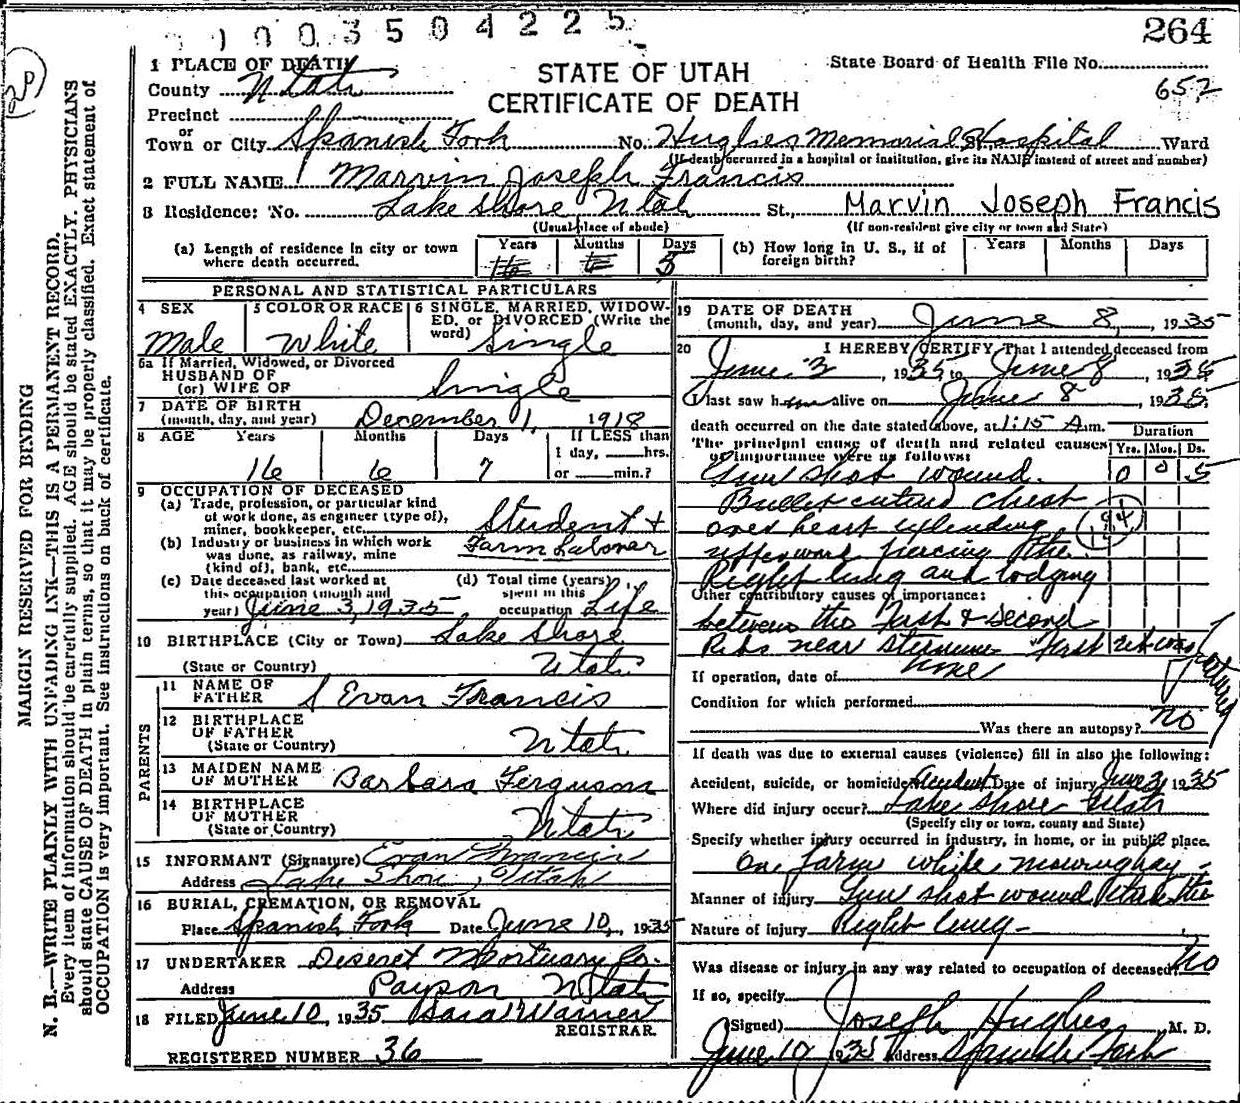 1003504225
264
1 PLACE OF DEATH
STATE OF UTAH
State Board of Health File No.
County Utah
CERTIFICATE OF DEATH
652
Precinct
or
Town or City Spanish Fork No. Hughes Memorial Hospital St. Ward
(If death occurred in a hospital or institution, give its NAME instead of street and number)
2 FULL NAME Marvin Joseph Francis
3 Residence: No. Lake Shore Utah St., Marvin Joseph Francis
(Usual place of abode) (If non-resident give city or town and State)
(a) Length of residence in city or town where death occurred. Years 16 Months 6 Days 5 (b) How long in U. S., if of foreign birth? Years Months Days
PERSONAL AND STATISTICAL PARTICULARS
4 SEX 5 COLOR OR RACE 6 SINGLE, MARRIED, WIDOWED, or DIVORCED (Write the word)
Male White Single
6a If Married, Widowed, or Divorced
HUSBAND OF
(or) WIFE OF Single
7 DATE OF BIRTH
(month, day, and year) December 1, 1918
8 AGE Years Months Days If LESS than
1 day, hrs.
16 6 7 or min.?
9 OCCUPATION OF DECEASED
(a) Trade, profession, or particular kind
of work done, as engineer (type of),
miner, bookkeeper, etc. Student +
(b) Industry or business in which work
was done, as railway, mine
(kind of), bank, etc. Farm Laborer
(c) Date deceased last worked at
this occupation (month and
year) June 3, 1935
(d) Total time (years)
spent in this
occupation Life
10 BIRTHPLACE (City or Town) Lake Shore
(State or Country) Utah
PARENTS
11 NAME OF
FATHER S Evan Francis
12 BIRTHPLACE
OF FATHER
(State or Country) Utah
13 MAIDEN NAME
OF MOTHER Barbara Ferguson
14 BIRTHPLACE
OF MOTHER
(State or Country) Utah
15 INFORMANT (Signature) Evan Francis
Address Lake Shore, Utah
16 BURIAL, CREMATION, OR REMOVAL
Place Spanish Fork Date June 10, 1935
17 UNDERTAKER Deseret Mortuary Co.
Address Payson Utah
18 FILED June 10, 1935 Sara Warner
REGISTRAR.
REGISTERED NUMBER 36
19 DATE OF DEATH
(month, day, and year) June 8, 1935
20 I HEREBY CERTIFY, That I attended deceased from
June 3, 1935 to June 8, 1935
I last saw him alive on June 8, 1935
death occurred on the date stated above, at 1:15 A.m.
Duration
The principal cause of death and related causes
of importance were as follows: Yrs. Mos. Ds.
Gun shot wound. 0 0 5
Bullet entered chest
over heart extending
184
upperward piercing the
Right lung and lodging
Other contributory causes of importance:
between the First & second
Ribs near sternum First rib was fractured
If operation, date of none
Condition for which performed
Was there an autopsy? no
If death was due to external causes (violence) fill in also the following:
Accident, suicide, or homicide Accident Date of injury June 3, 1935
Where did injury occur? Lake Shore Utah
(Specify city or town, county and State)
Specify whether injury occurred in industry, in home, or in public place.
On farm while mowing hay -
Manner of injury Gun shot wound the
Nature of injury Right lung -
Was disease or injury in any way related to occupation of deceased? No
If so, specify
(Signed) Joseph Hughes, M. D.
June 10 1935 Address Spanish Fork
MARGIN RESERVED FOR BINDING
N. B.—WRITE PLAINLY WITH UNFADING INK—THIS IS A PERMANENT RECORD.
Every item of information should be carefully supplied. AGE should be stated EXACTLY. PHYSICIANS
should state CAUSE OF DEATH in plain terms, so that it may be properly classified. Exact statement of
OCCUPATION is very important. See instructions on back of certificate.